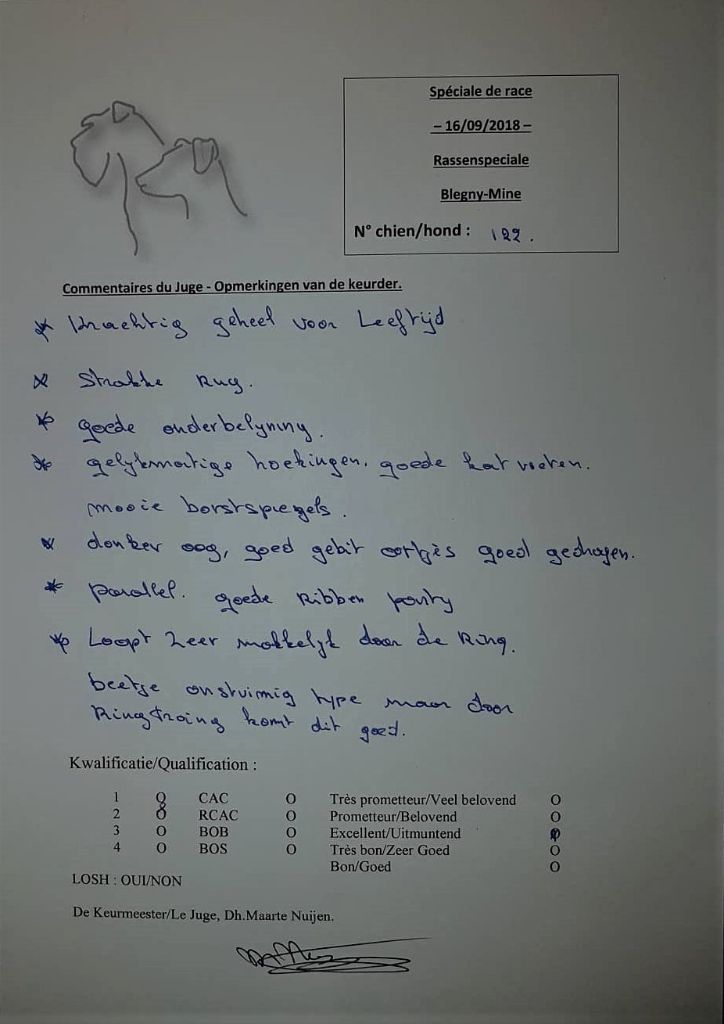 Spéciale de race
– 16/09/2018 –
Rassenspeciale
Blegny-Mine
N° chien/hond : 122.
Commentaires du Juge - Opmerkingen van de keurder.
* krachtig geheel voor Leeftijd
* Strakke Rug.
* goede onderbelyning.
* gelykmatige hoekingen. goede kat voeten.
mooie borstspiegels.
* donker oog, goed gebit oortjes goed gedragen.
* parallel. goede Ribben
* Loopt Zeer makkelijk door de Ring.
beetje onstuimig type maar door
Ringtraing komt dit goed.
Kwalificatie/Qualification :
1 O CAC O Très prometteur/Veel belovend O
2 O RCAC O Prometteur/Belovend O
3 O BOB O Excellent/Uitmuntend O
4 O BOS O Très bon/Zeer Goed O
Bon/Goed O
LOSH : OUI/NON
De Keurmeester/Le Juge, Dh.Maarte Nuijen.